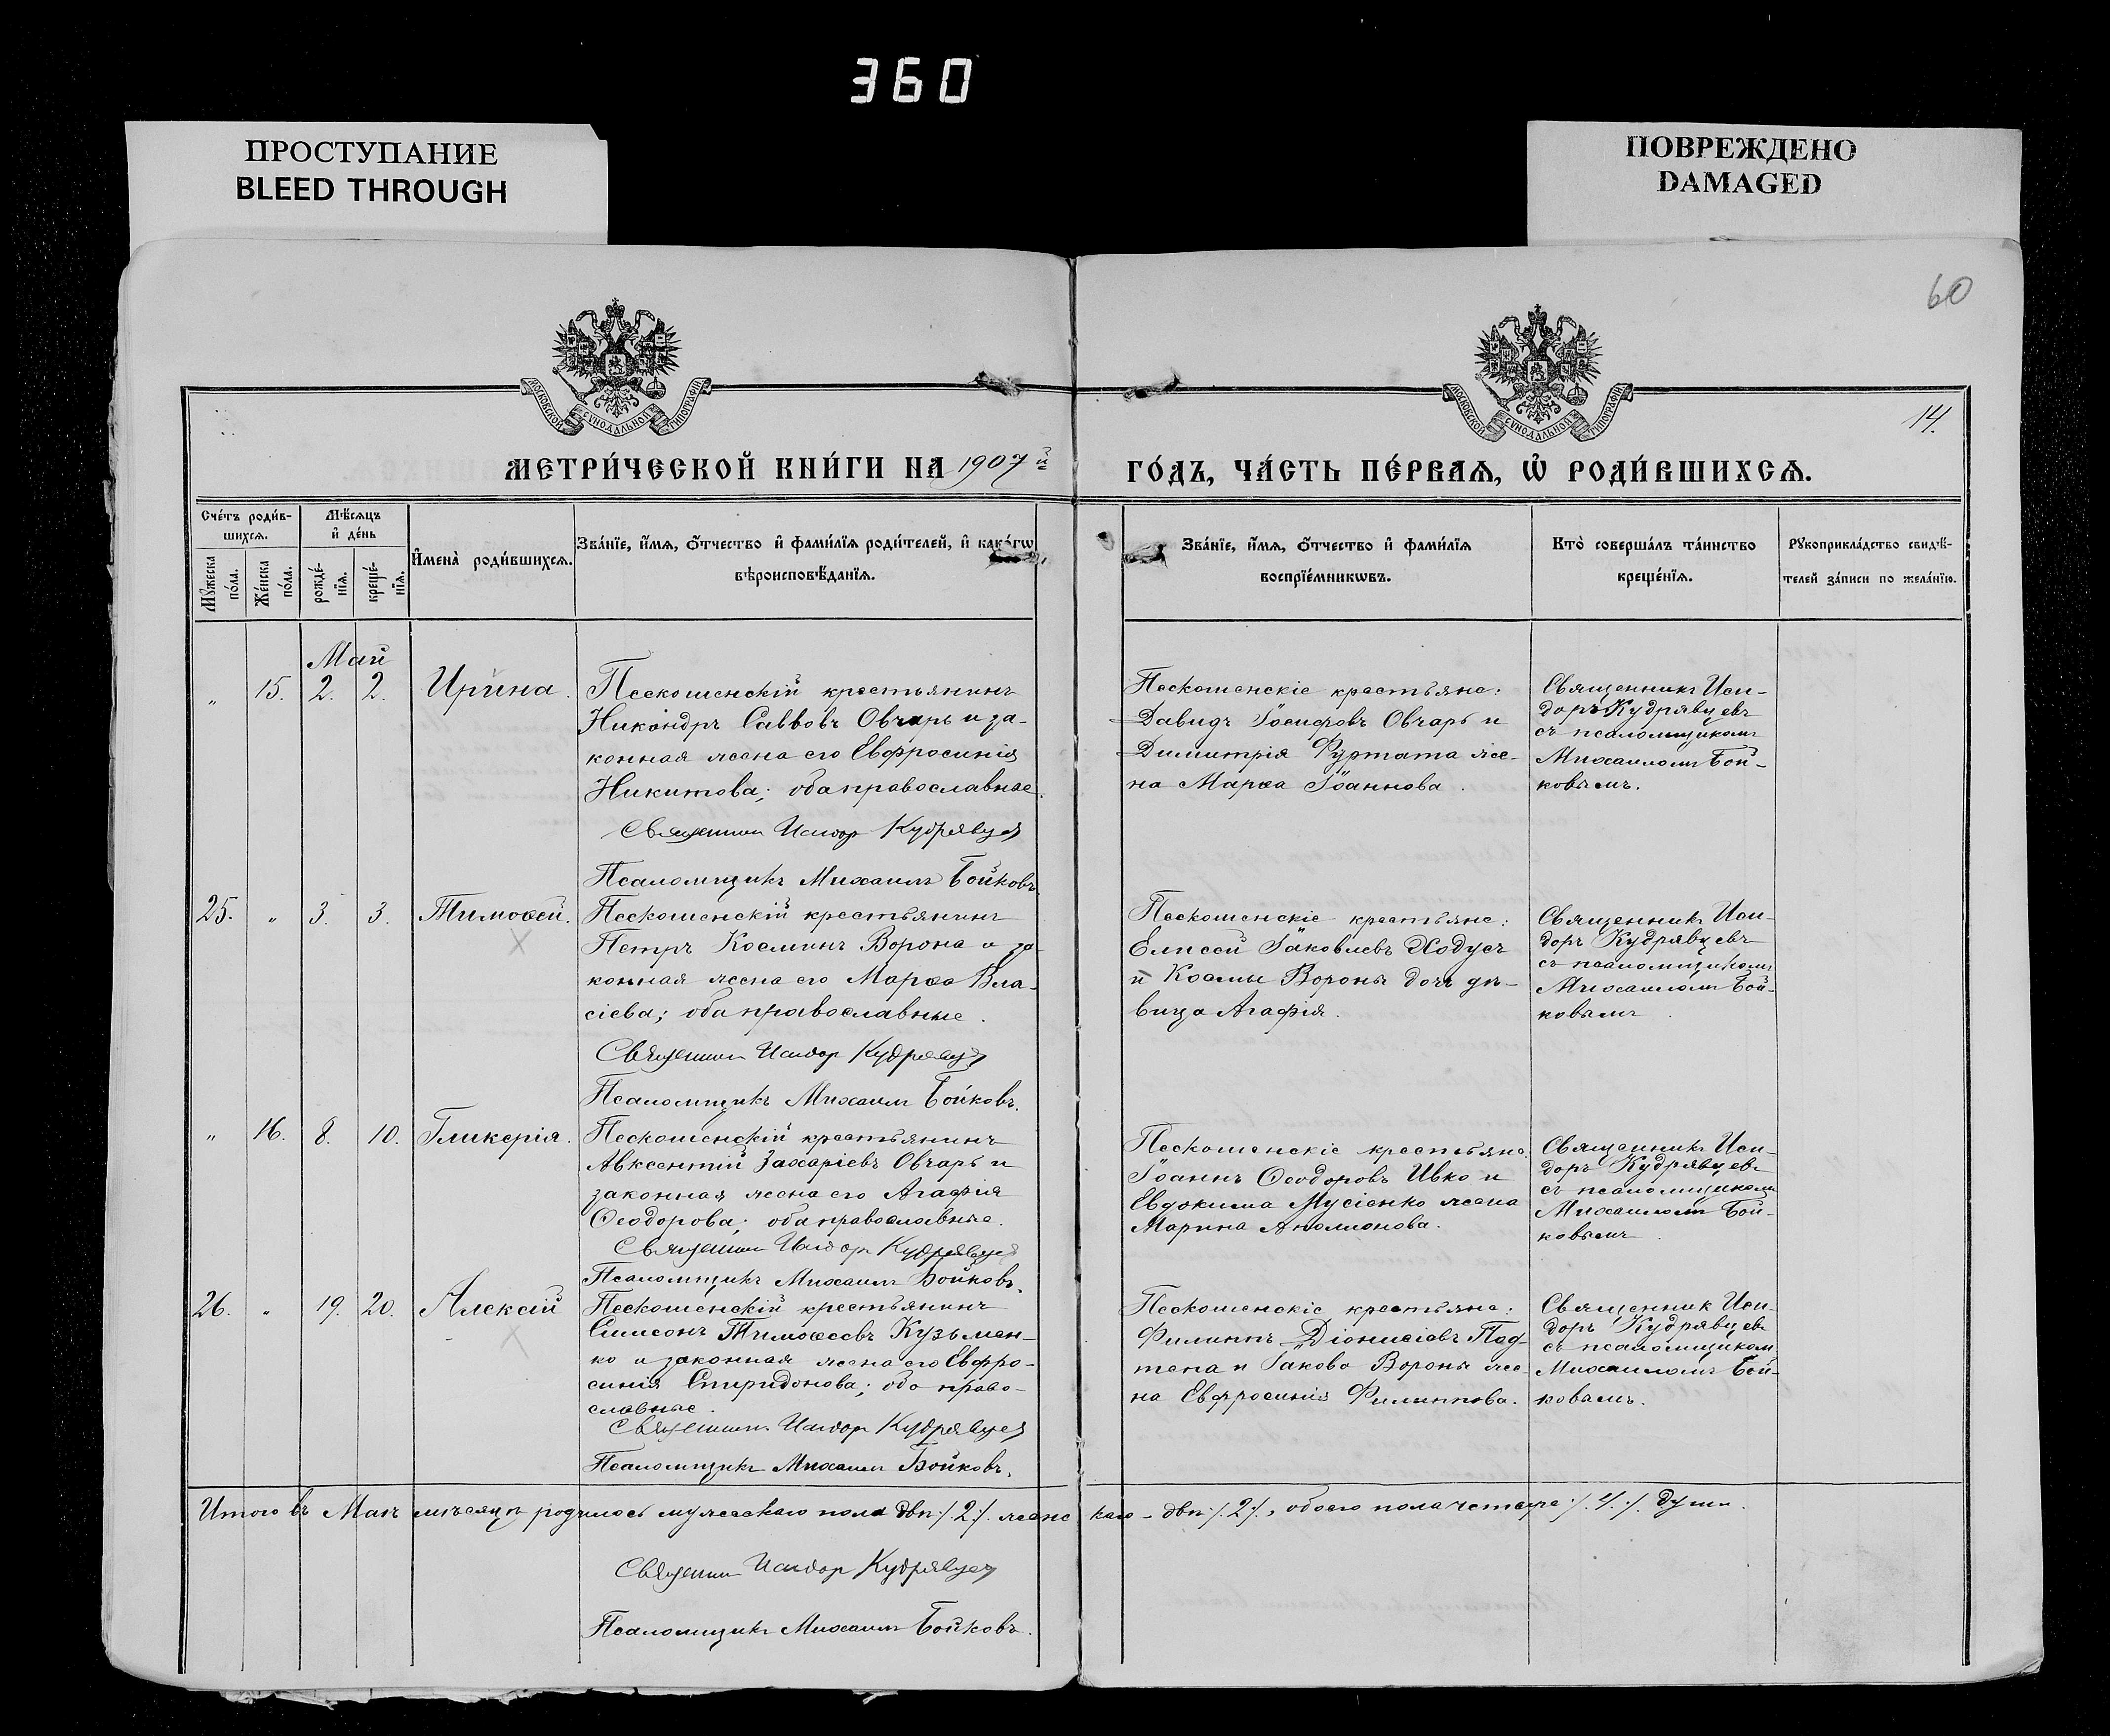 360
ПРОСТУПАНИЕ
BLEED THROUGH
ПОВРЕЖДЕНО
DAMAGED
60
МОСКОВСКОЙ СѴНОДАЛЬНОЙ ТИПОГРАФІИ
МОСКОВСКОЙ СѴНОДАЛЬНОЙ ТИПОГРАФІИ
14.
МЕТРИ́ЧЕСКОЙ КНИ́ГИ НА 1907 й
ГО́ДЪ, ЧА́СТЬ ПЕ́РВАѦ, Ѡ҆ РОДИ́ВШИХСѦ.
Сче́тъ роди́в-
шихсѧ.
Мѣ́сѧцъ
и҆ де́нь
Мꙋжеска
по́ла.
Же́нска
по́ла.
рожде́-
нїѧ.
креще́-
нїѧ.
И҆мена̀ роди́вшихсѧ.
Зва́нїе, и҆́мѧ, ѻ҆́тчество и҆ фами́лїѧ роди́телей, и҆ како́гѡ
вѣроисповѣ́данїѧ.
Зва́нїе, и҆́мѧ, ѻ҆́тчество и҆ фами́лїѧ
воспрїе́мникѡвъ.
Кто̀ соверша́лъ та́инство
креще́нїѧ.
Рꙋкоприкла́дство свидѣ́-
телей за́писи по жела́нїю.
Май
„ 15. 2. 2. Ирина.
Пескошенскій крестьянинъ
Никандръ Саввовъ Овчарь и за-
конная жена его Евфросинія
Никитова; оба православные.
Священник Исидор Кудрявцев
Псаломщикъ Михаилъ Бойковъ.
Пескошенскіе крестьяне:
Давидъ Іосифовъ Овчарь и
Димитрія Фуртата же-
на Марѳа Іоаннова.
Священникъ Иси-
доръ Кудрявцевъ
съ псаломщикомъ
Михаиломъ Бой-
ковымъ.
25. „ 3. 3. Тимоѳей.
Пескошенскій крестьянинъ
Петръ Космінъ Ворона и за-
конная жена его Марѳа Вла-
сіева; оба православные.
Священник Исидор Кудрявцев
Псаломщикъ Михаилъ Бойковъ.
Пескошенскіе крестьяне:
Елисей Іаковлевъ Ходусъ
и Космы Вороны дочь дѣ-
вица Агафія.
Священникъ Иси-
доръ Кудрявцевъ
съ псаломщикомъ
Михаиломъ Бой-
ковымъ.
„ 16. 8. 10. Гликерія.
Пескошенскій крестьянинъ
Авксентій Захаріевъ Овчарь и
законная жена его Агафія
Ѳеодорова; оба православные.
Священник Исидор Кудрявцев
Псаломщикъ Михаилъ Бойковъ.
Пескошенскіе крестьяне:
Іоаннъ Ѳеодоровъ Ивко и
Евдокима Мусіенко жена
Марина Аполлонова.
Священникъ Иси-
доръ Кудрявцевъ
съ псаломщикомъ
Михаиломъ Бой-
ковымъ.
26. „ 19. 20. Алексій
Пескошенскій крестьянинъ
Симеонъ Тимоѳеевъ Кузьмен-
ко и законная жена его Евфро-
синія Спиридонова; оба право-
славные.
Священник Исидор Кудрявцев
Псаломщикъ Михаилъ Бойковъ.
Пескошенскіе крестьяне:
Филиппъ Діонисіевъ
и Іакова Вороны же-
на Евфросинія Филиппова.
Священник Иси-
доръ Кудрявцевъ
съ псаломщикомъ
Михаиломъ Бой-
ковымъ.
Итого въ Маѣ мѣсяцѣ родилось мужескаго пола двѣ ./. 2 ./. женс каго – двѣ ./. 2 ./., обоего пола четыре ./. 4 ./. души.
Священник Исидор Кудрявцев
Псаломщикъ Михаилъ Бойковъ.